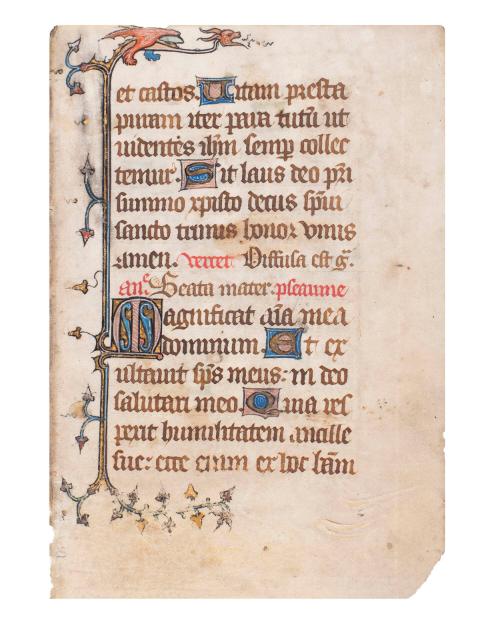 et castos. Uitam presta
puram iter para tutū ut
uidentes ihm̄ semꝑ collec
temur. Sit laus deo pr̄i
summo xp̄isto decus sp̄ui
sancto trinus honor vnus
amen. verset Diffusa est gr̄.
anē Beata mater. pseaume
Magnificat aīa mea
dominum. Et ex
ultauit sp̄s meus: in deo
salutari meo. Quia res
pexit humilitatem ancille
sue: ecce enim ex hoc b̄am